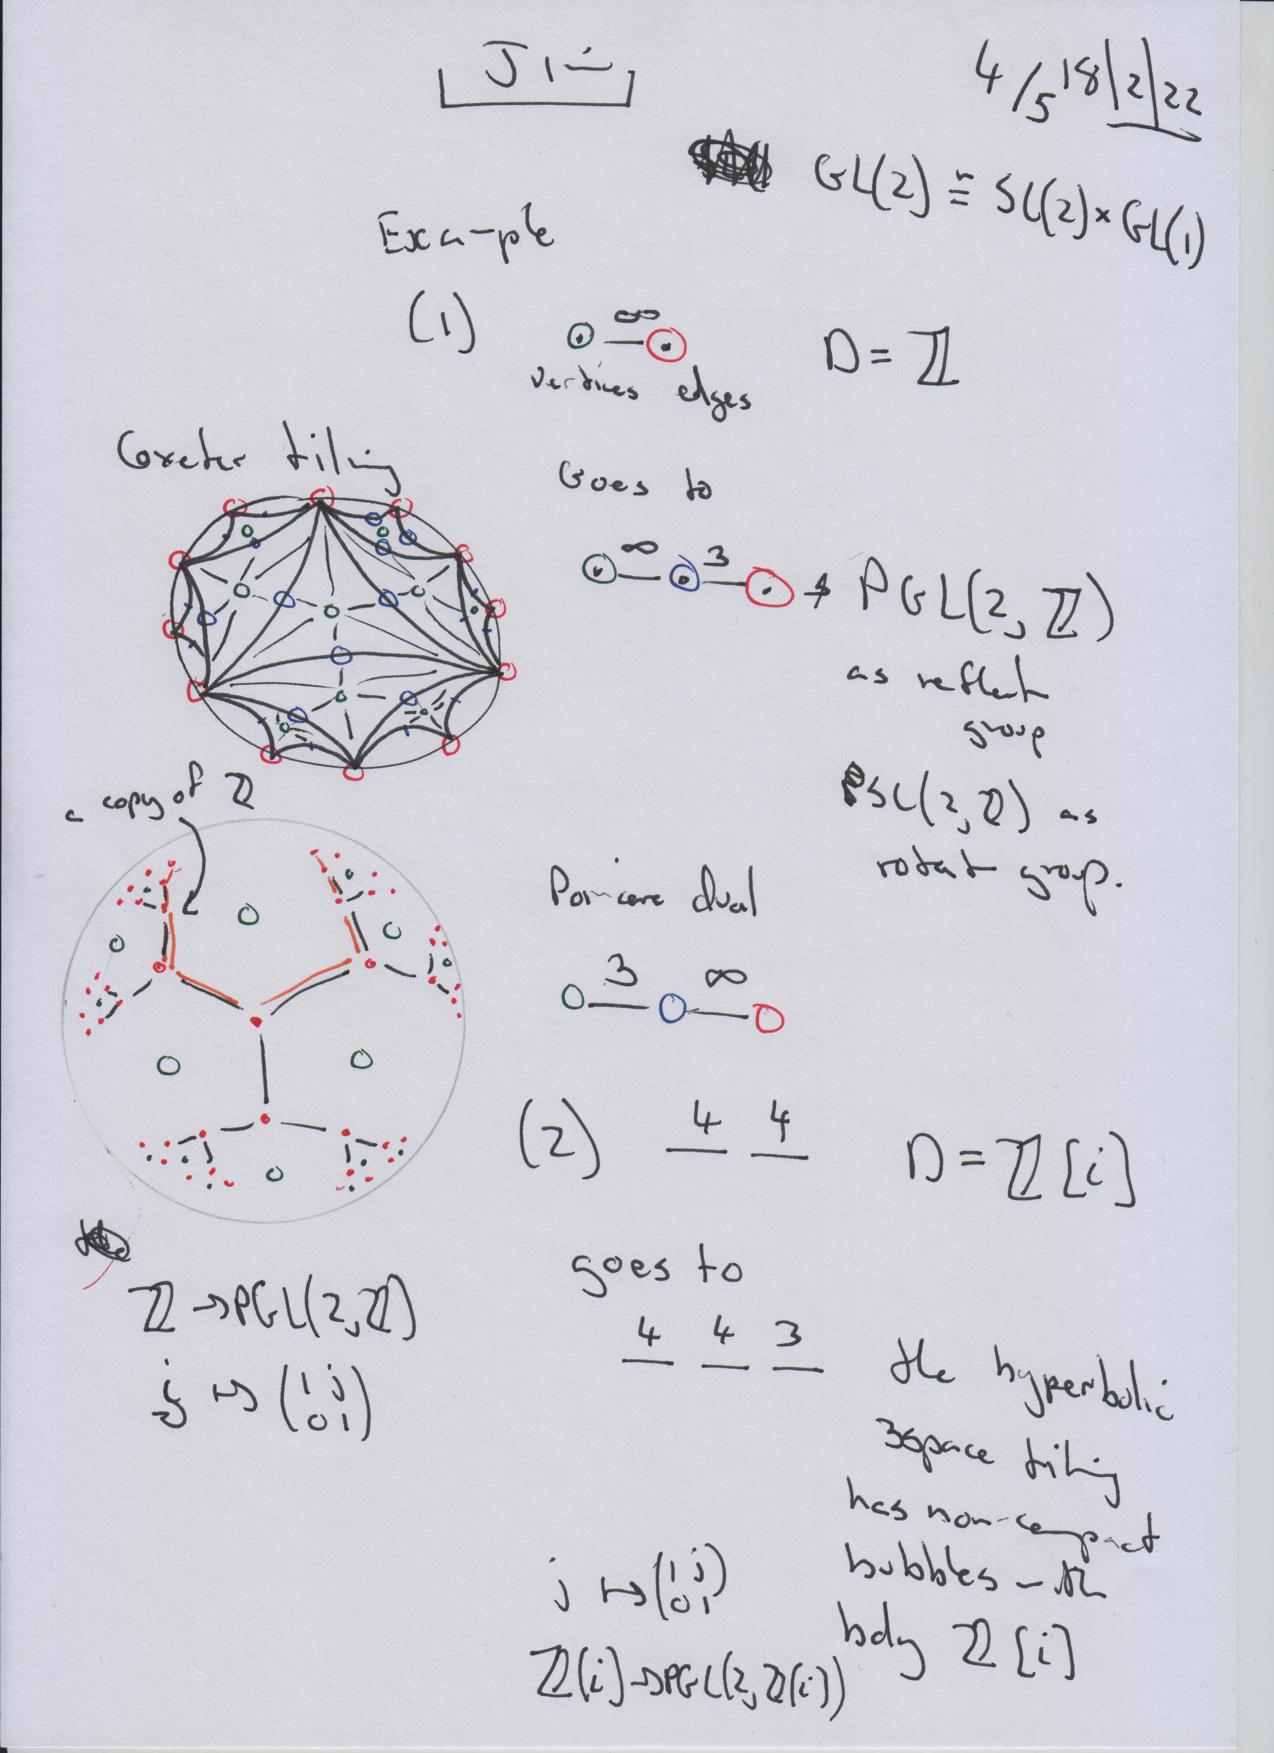 Jim
4/5 18/2/22
GL(2) ≅ SL(2) × GL(1)
Example
(1)
∞
vertices edges
D = ℤ
Coxeter tiling
Goes to
∞ 3
→ PGL(2, ℤ)
as reflect
group
PSL(2, ℤ) as
rotat group.
a copy of ℤ
Poincare dual
3 ∞
(2) 4 4 D = ℤ[i]
goes to
4 4 3
the hyperbolic
3space tiling
has non-compact
bubbles - the
body ℤ[i]
ℤ → PGL(2, ℤ)
j ↦ (1 j
0 1)
j ↦ (1 j
0 1)
ℤ[i] → PGL(2, ℤ(i))